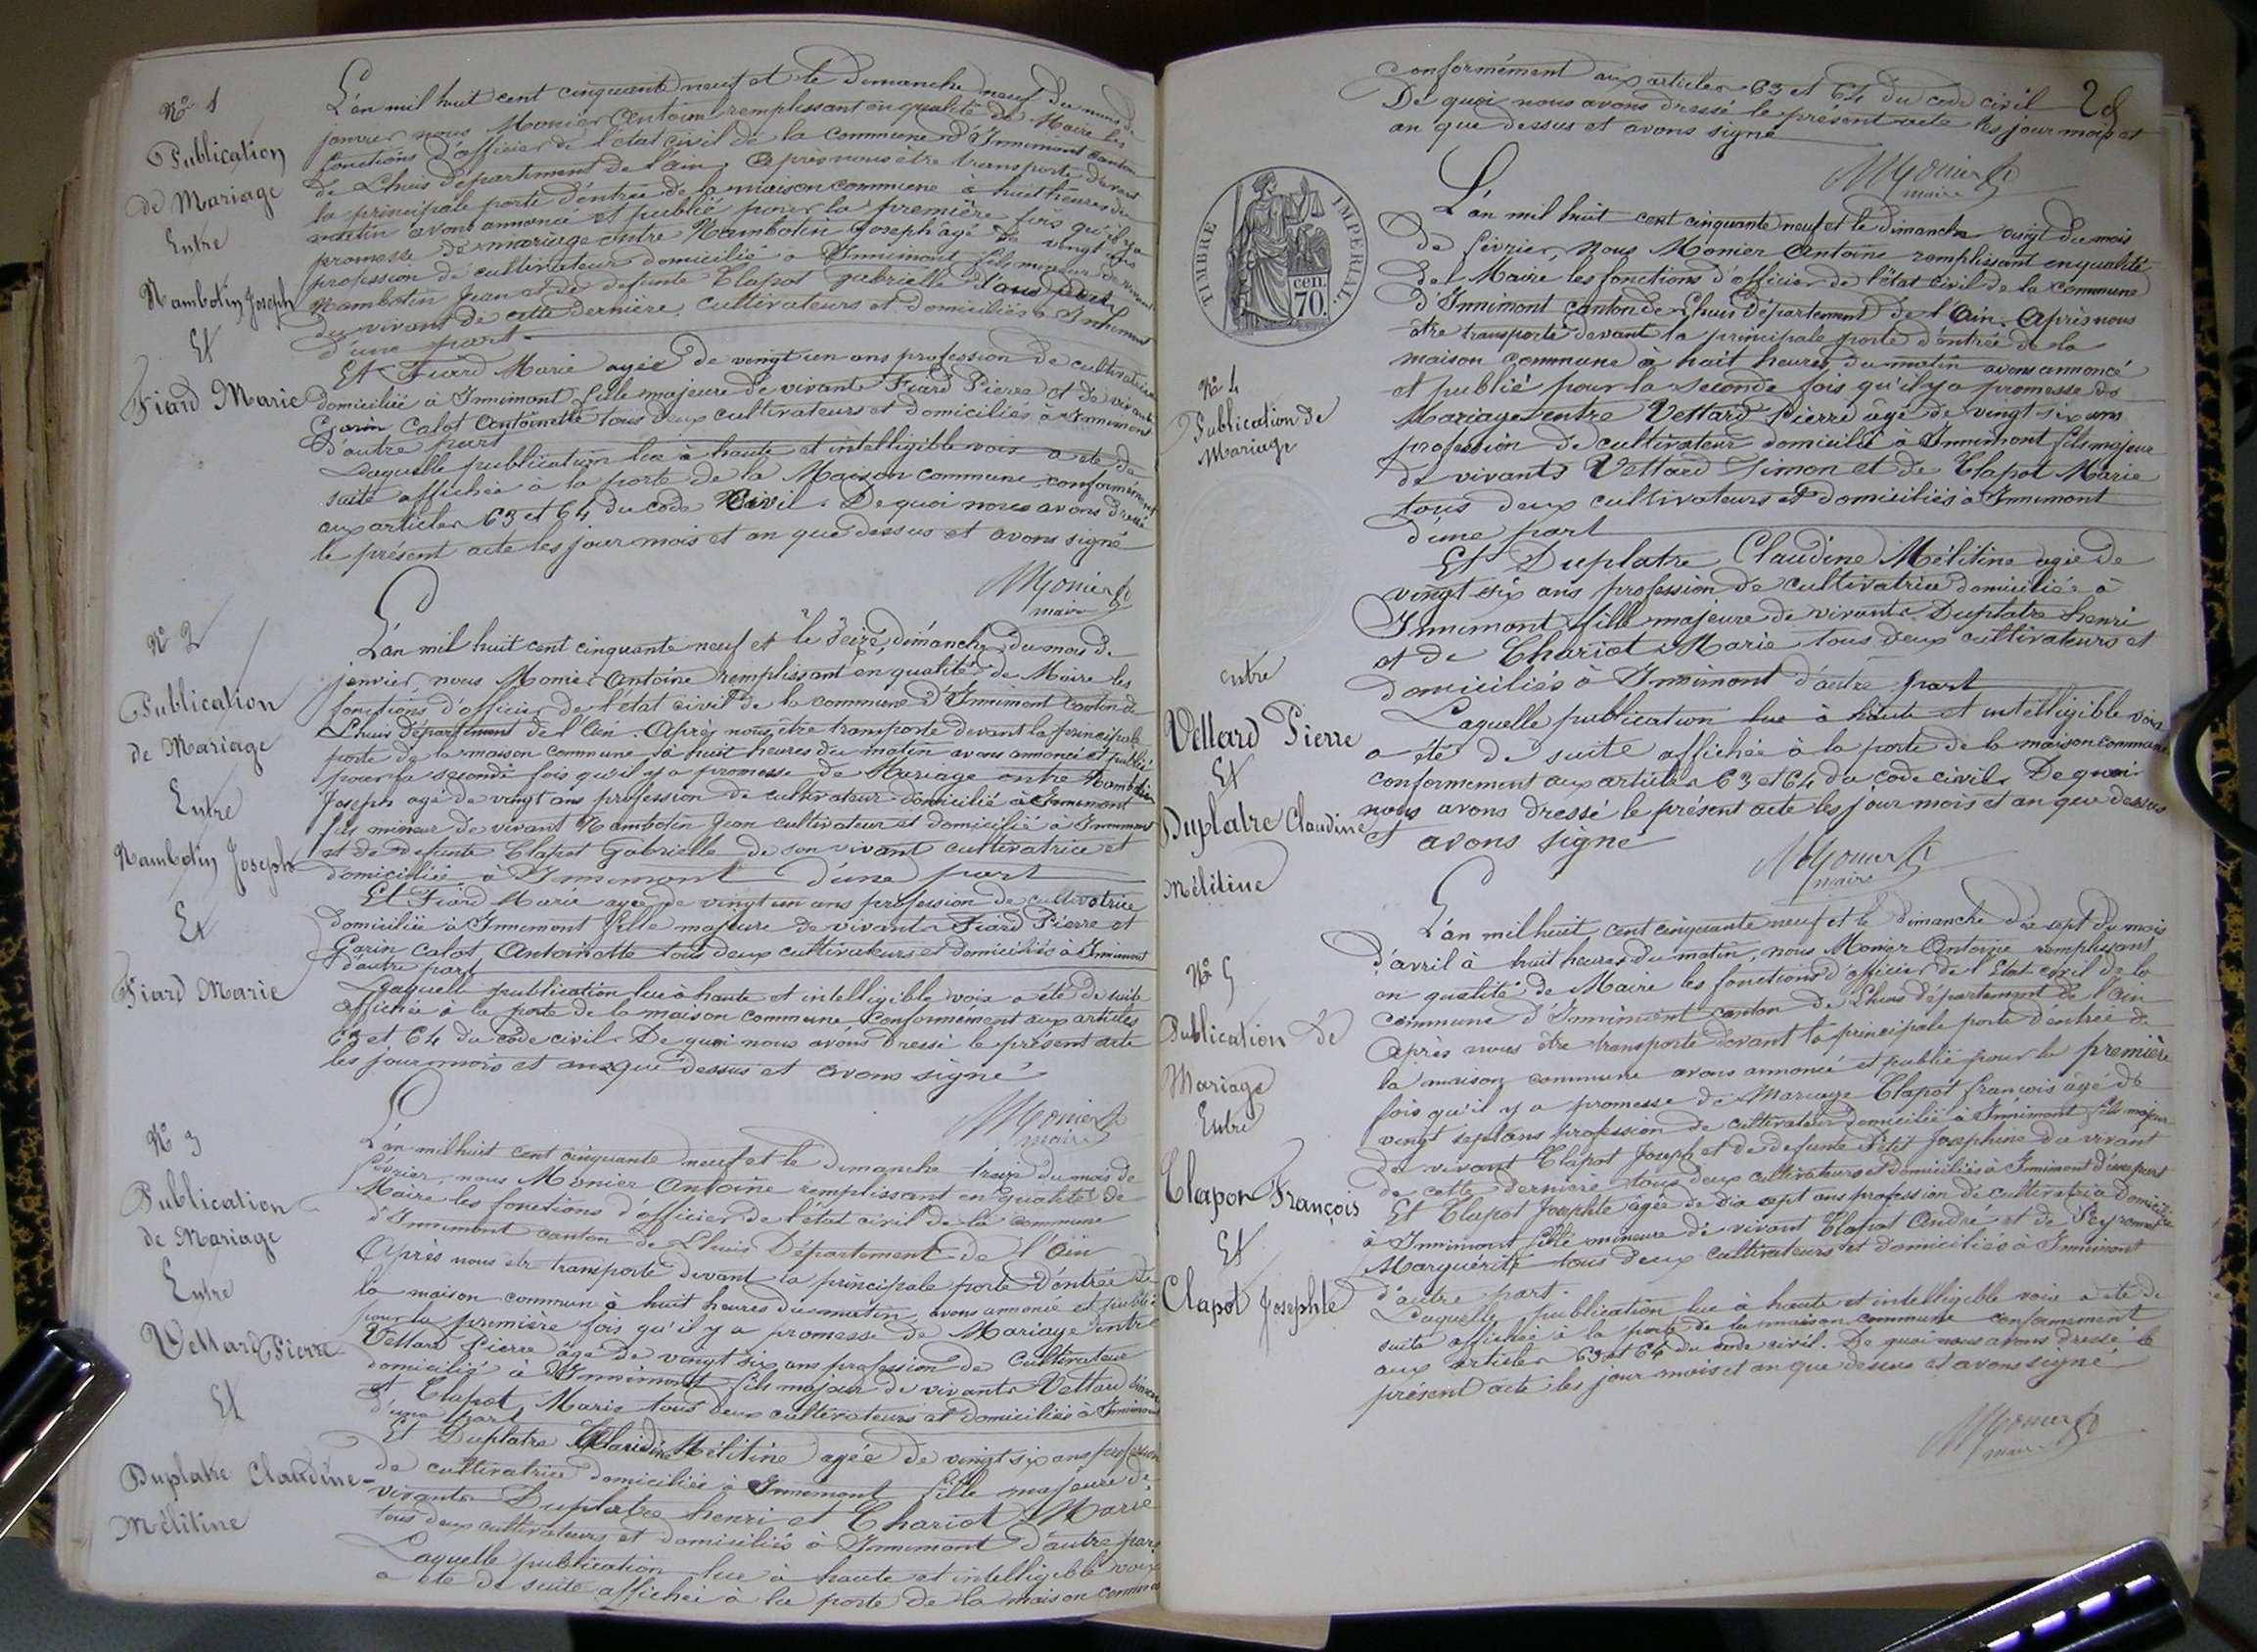 Nº 1
Publication
de Mariage
Entre
Nambotin Joseph
Et
Fiard Marie
L'an mil huit cent cinquante neuf et le dimanche neuf du mois de
janvier nous Monier Antoine remplissant en qualité de Maire les
fonctions d'officier de l'état civil de la commune d'Innimont canton
de Lhuis département de l'ain. Après nous être transporté devant
la principale porte d'entrée de la maison commune à huit heures du
matin avons annoncé et publié pour la première fois qu'il y a
promesse de mariage entre Nambotin Joseph agé de vingt ans
profession de cultivateur domicilié à Innimont fils mineur de vivant
Nambotin Jean et de defunte Clapot gabrielle
du vivant de cette dernière, cultivateurs et domiciliés à Innimont
d'une part
Et Fiard Marie agée de vingt un ans profession de cultivatrice
domiciliée à Innimont fille majeure de vivants Fiard Pierre et de vivante
Garin Calot Antoinette tous deux cultivateurs et domiciliés à Innimont
d'autre part
Laquelle publication lue à haute et intelligible voix a été de
suite affichée à la porte de la Maison commune conformément
aux articles 63 et 64 du code Civil. De quoi nous avons dressé
le présent acte les jour mois et an que dessus et avons signé
Monier
maire
Nº 2
Publication
de Mariage
Entre
Nambotin Joseph
Et
Fiard Marie
L'an mil huit cent cinquante neuf et le seize, dimanche du mois de
janvier nous Monier Antoine remplissant en qualité de Maire les
fonctions d'officier de l'état civil de la commune d'Innimont canton de
Lhuis département de l'Ain. Après nous être transporté devant la principale
porte de la maison commune à huit heures du matin avons annoncé et publié
pour la seconde fois qu'il y a promesse de Mariage entre Nambotin
Joseph agé de vingt ans profession de cultivateur domicilié à Innimont
fils mineur de vivant Nambotin Jean cultivateur et domicilié à Innimont
et de defunte Clapot Gabrielle de son vivant cultivatrice et
domiciliée à Innimont d'une part
Et Fiard Marie agée de vingt un ans profession de cultivatrice
domiciliée à Innimont fille majeure de vivants Fiard Pierre et
Garin Calot Antoinette tous deux cultivateurs et domiciliés à Innimont
d'autre part
Laquelle publication lue à haute et intelligible voix a été de suite
affichée à la porte de la maison commune conformément aux articles
63 et 64 du code civil. De quoi nous avons dressé le présent acte
les jour mois et an que dessus et avons signé
Monier
maire
Nº 3
Publication
de Mariage
Entre
Vettard Pierre
Et
Duplatre Claudine
Mélitine
L'an mil huit cent cinquante neuf et le dimanche treize du mois de
février, nous Monier Antoine remplissant en qualité de
Maire les fonctions d'officier de l'état civil de la commune
d'Innimont canton de Lhuis Département de l'Ain
Après nous etre transporté devant la principale porte d'entrée de
la maison commune à huit heures du matin, avons annoncé et publié
pour la première fois qu'il y a promesse de Mariage entre
Vettard Pierre âgé de vingt six ans profession de Cultivateur
domicilié à Innimont fils majeur de vivants Vettard Simon
et Clapot Marie tous deux cultivateurs et domiciliés à Innimont
d'une part
Et Duplatre Claudine Mélitine agée de vingt six ans profession
de cultivatrice domiciliée à Innimont fille majeure de
vivants Duplatre henri et Chariot Marie
tous deux cultivateurs et domiciliés à Innimont d'autre part
Laquelle publication lue à haute et intelligible voix
a été de suite affichée à la porte de la maison commune
28
conformément aux articles 63 et 64 du code civil
De quoi nous avons dressé le présent acte les jour mois et
an que dessus et avons signé
Monier
maire
TIMBRE IMPERIAL.
cen.
70.
Nº 4
Publication de
Mariage
entre
Vettard Pierre
Et
Duplatre Claudine
Mélitine
L'an mil huit cent cinquante neuf et le dimanche vingt du mois
de février, nous Monier Antoine remplissant en qualité
de Maire les fonctions d'officier de l'état civil de la commune
d'Innimont canton de Lhuis département de l'Ain. Après nous
être transporté devant la principale porte d'entrée de la
maison commune à huit heures du matin avons annoncé
et publié pour la seconde fois qu'il y a promesse de
Mariage entre Vettard Pierre âgé de vingt six ans
profession de cultivateur domicilié à Innimont fils majeur
de vivants Vettard Simon et de Clapot Marie
tous deux cultivateurs et domiciliés à Innimont
d'une part
Et Duplatre Claudine Mélitine agée de
vingt six ans profession de cultivatrice domiciliée à
Innimont fille majeure de vivants Duplatre henri
et de Chariot Marie tous deux cultivateurs et
domiciliés à Innimont d'autre part
Laquelle publication lue à haute et intelligible voix
a été de suite affichée à la porte de la maison commune
conformement aux articles 63 et 64 du code civil. De quoi
nous avons dressé le présent acte les jour mois et an que dessus
et avons signé
Monier
maire
Nº 5
Publication de
Mariage
Entre
Clapot François
Et
Clapot Josephte
L'an mil huit cent cinquante neuf et le dimanche dix sept du mois
d'avril à huit heures du matin, nous Monier Antoine remplissant
en qualité de Maire les fonctions d'officier de l'Etat civil de la
commune d'Innimont canton de Lhuis département de l'Ain
Après nous être transporté devant la principale porte d'entrée de
la maison commune avons annoncé et publié pour la première
fois qu'il y a promesse de Mariage Clapot françois âgé de
vingt sept ans profession de cultivateur domicilié à Innimont fils majeur
de vivant Clapot Joseph et de defunte Petit Josephine du vivant
de cette derniere tous deux cultivateurs et domiciliés à Innimont d'une part
Et Clapot Josephte âgée de dix sept ans profession de cultivatrice domiciliée
à Innimont fille mineure de vivant Clapot André et de
Marguérite tous deux cultivateurs et domiciliés à Innimont
d'autre part.
Laquelle publication lue à haute et intelligible voix a été de
suite affichée à la porte de la maison commune conformement
aux articles 63 et 64 du code civil. De quoi nous avons dressé le
présent acte les jour mois et an que dessus et avons signé
Monier
maire